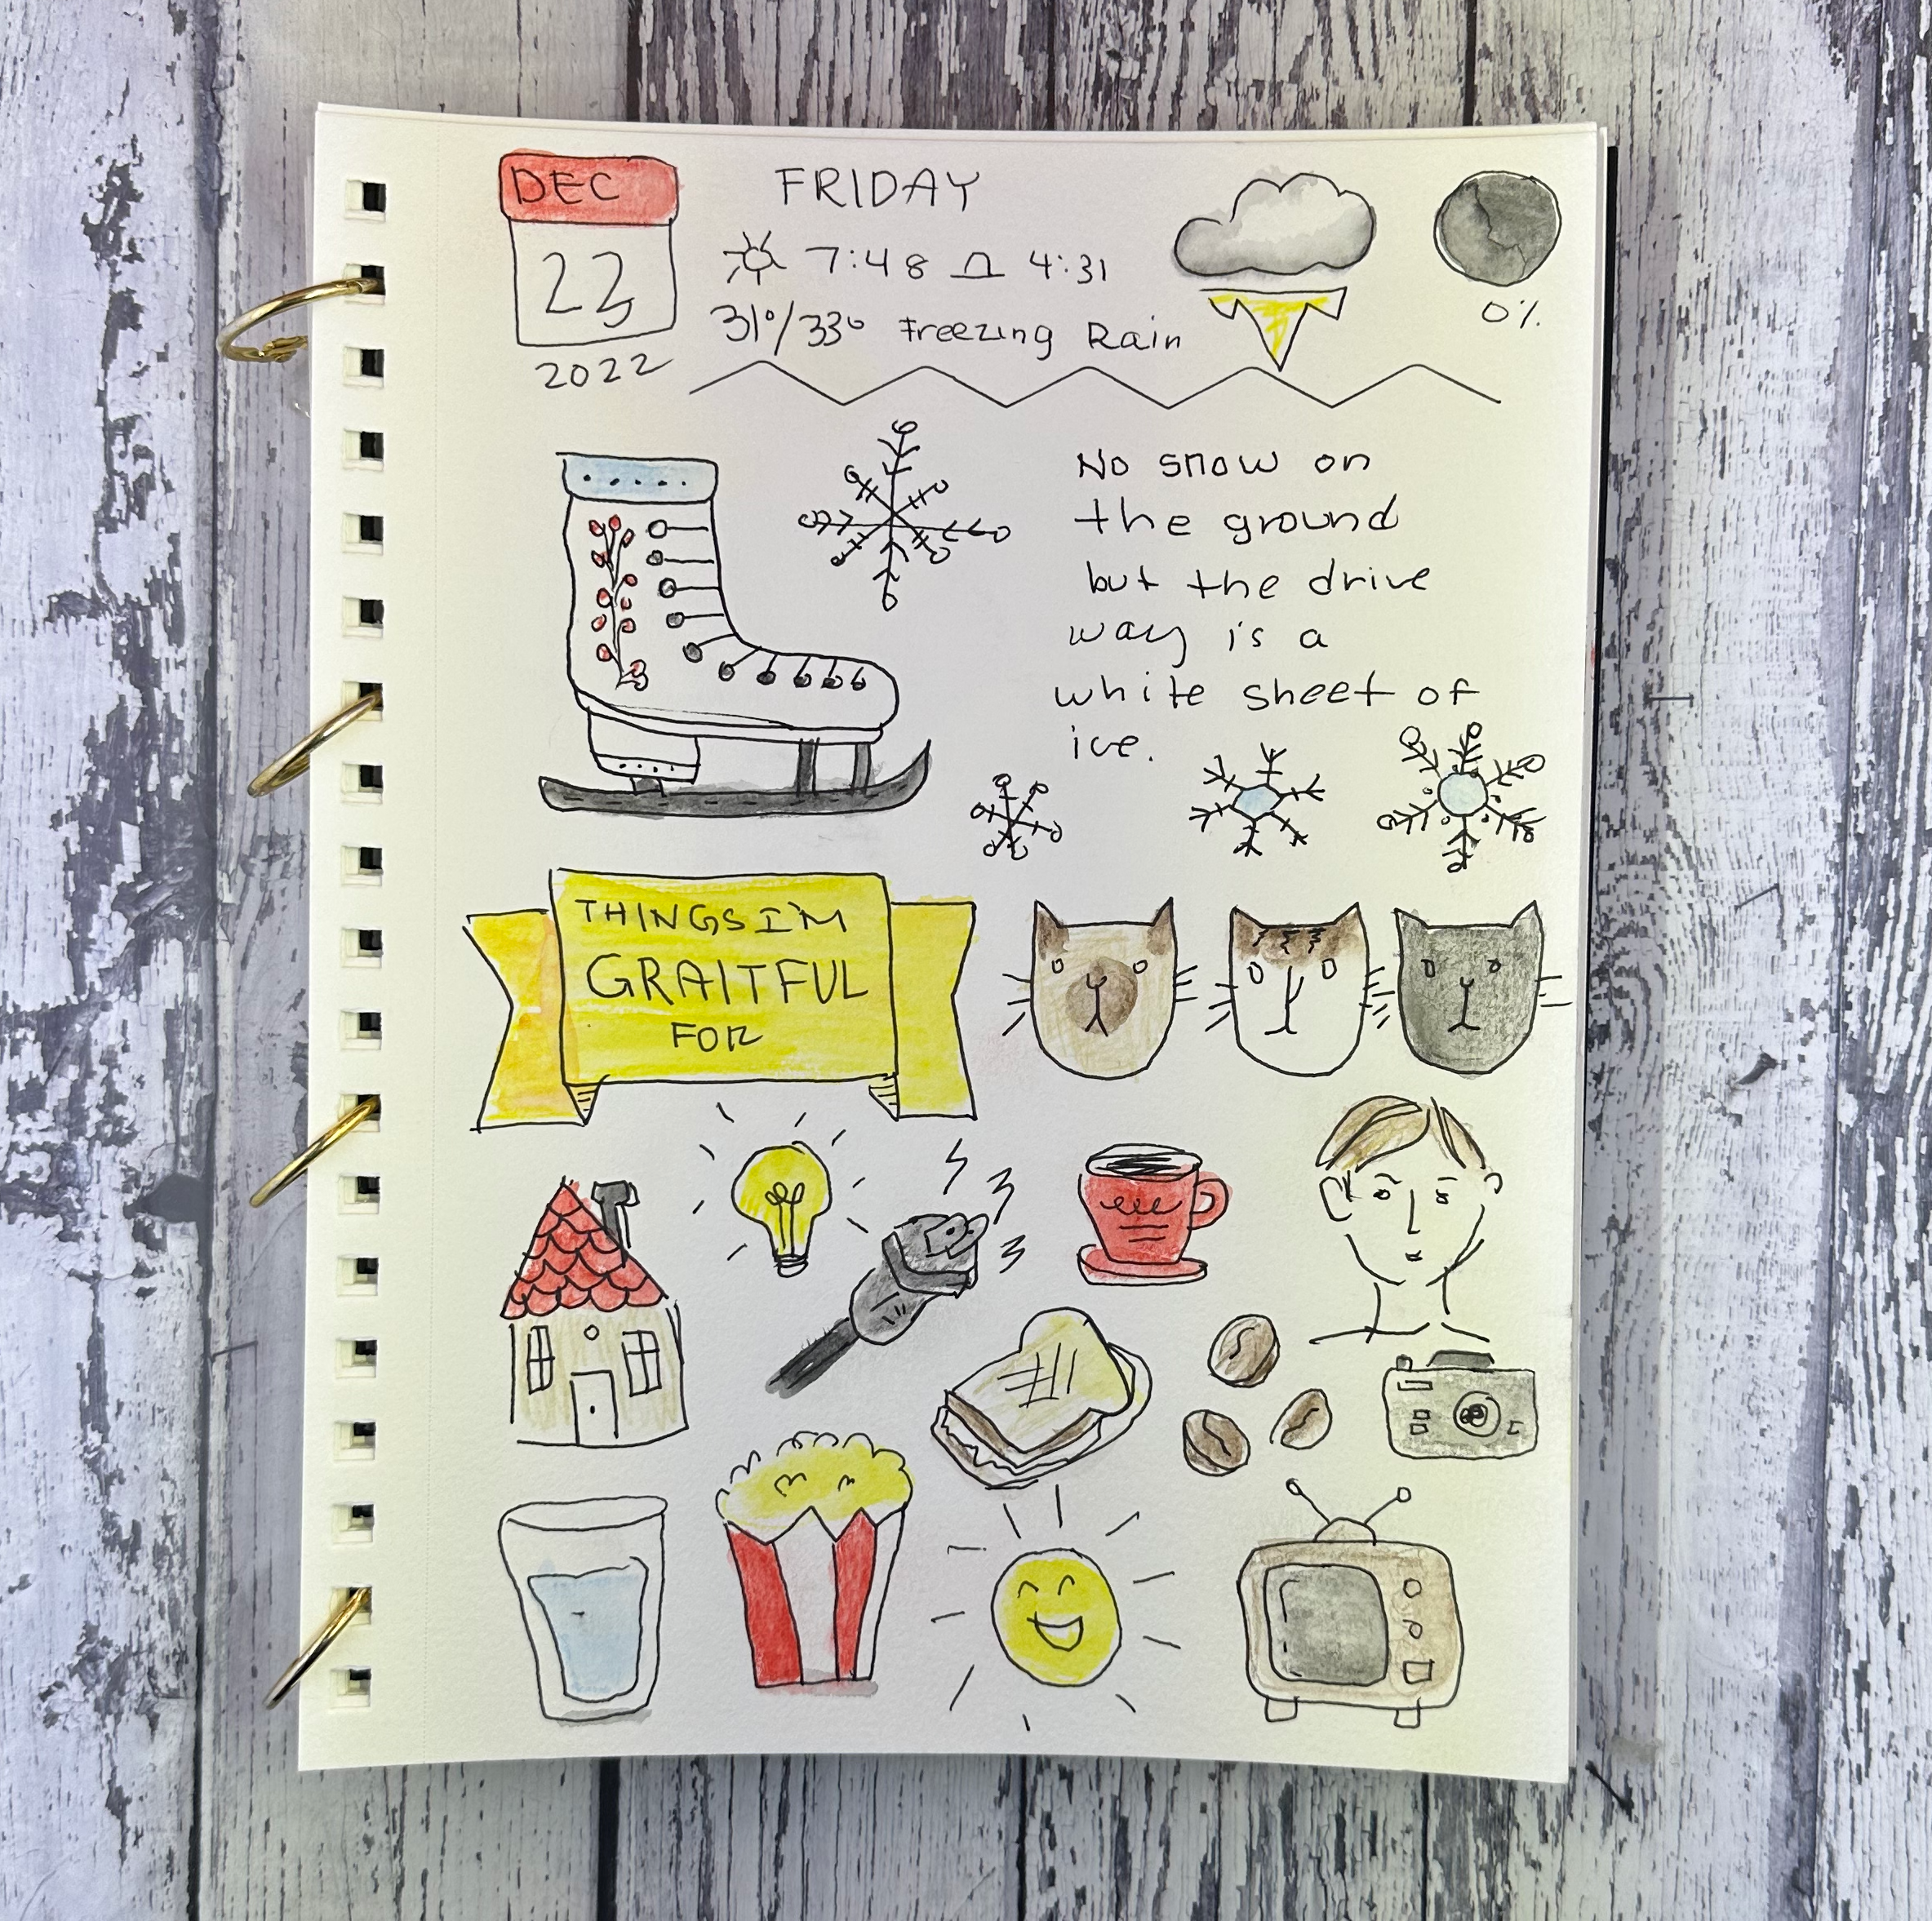 DEC
23
2022
FRIDAY
7:48 4:31
31°/33° Freezing Rain
0%
No snow on
the ground
but the drive
way is a
white sheet of
ice.
THINGS I'M
GRAITFUL
FOR